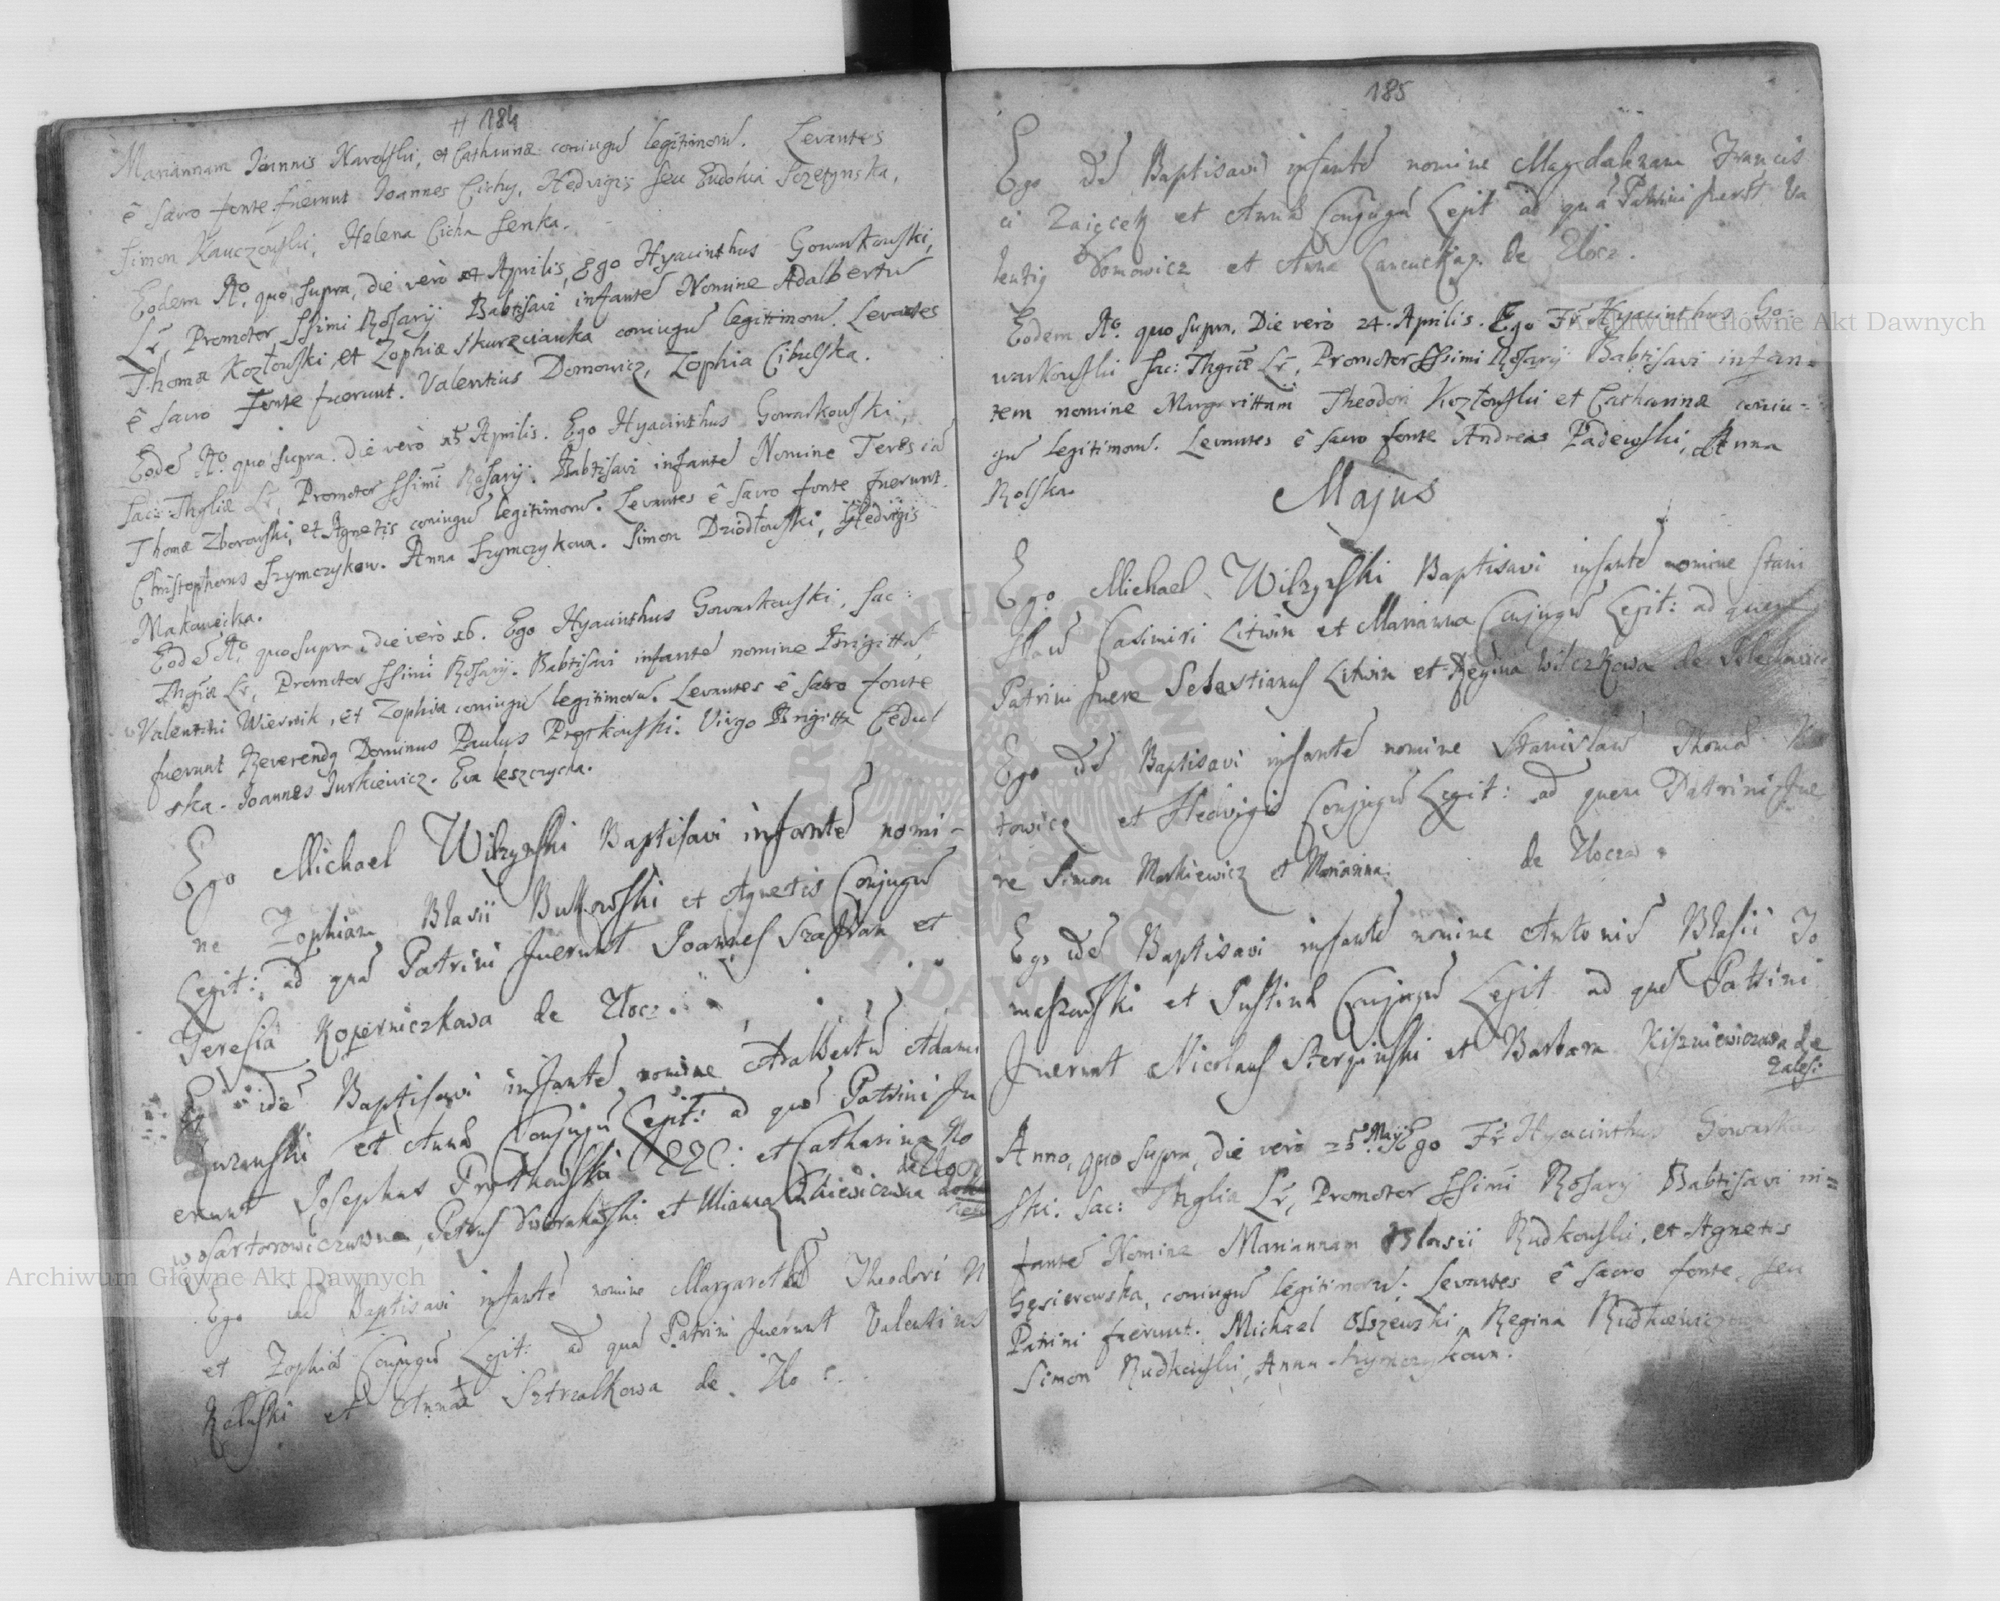 184
Mariannam Joannis Karolski, et Catharinæ coniugũ legitimorũ. Levantes
ê sacro fonte fuerunt Joannes Cichy, Hedvigis seu Eudokia Szczepynska,
Simon Kauczowski, Helena Cicha Senka.
Eodem Aº. quo supra, die verò Aprilis, Ego Hyacinthus Gowarkowski,
Promotor SSimi Rosarij Babtisavi infantẽ Nomine Adalbertũ
Thomæ Kozłowski et Zophiæ Skurzcianka coniugũ legittimorũ. Levantes
ê sacro Fonte fuerunt. Valentius Domowicz, Zophia Cibulska.
Eodẽ Aº. quo supra. die verò Aprilis. Ego Hyacinthus Gowarkowski,
Sac: Thgliæ Promotor SSimi Rosarij. Babtisavi infantẽ Nomine Teresiã
Thomæ Zborowski, et Agnetis coniugũ legitimorũ. Levantes ê sacro fonte fuerunt.
Christophorus Szymczykow. Anna Szymczykowa. Simon Dziodłowski, Hedvigis
Makawcka.
Eodẽ Aº. quo supra, die verò 26. Ego Hyacinthus Gowarkowski, Sac:
Promotor SSimi Rosarij. Babtisavi infantẽ nomine Brigittã
Valentini Wiesnik, et Zophia coniugũ legitimorũ. Levantes ê sacro fonte
fuerunt Reverendq Dominus Paulus Prępkowski. Virgo Brigitta Cedul
ska. Joannes Jurkiewicz. Eva Leszczycka.
Ego Michael Wilczynski Baptisavi infantẽ nomi-
ne Zophiam Blasii Bukowski et Agnetis Conjugũ
Legit: ad quã Patrini fuerunt Joannes Szafran et
Teresia Koperniczkowa de Ułocz.
Ego idẽ Baptisavi infantẽ nomine Adalbertũ Adami
Zurawski et Annæ Conjugũ Legit: ad quẽ Patrini fu
erunt Josephus Prątkowski et Catharina No
wosartorowiczowna, Petrus Dworakowski et
Ego idẽ Baptisavi infantẽ nomine Margarethã Theodori N
et Zophiæ Conjugũ Legit: ad quã Patrini fuerunt Valentinus
Rolnski et Anna Sztrzalkowa de Uło
185
Ego idẽ Baptisavi infantẽ nomine Magdalenam Francis
ci Zaięcek et Annæ Conjugũ Legit ad quã Patrini fuerũt Va
lentiq Domowicz et Anna de Ułocz.
Eodem Aº. quo supra. Die verò 24. Aprilis. Ego Fr Hyacinthus Go-
warkowski Sac: Promotor SSimi Rosarij Babtisavi infan=
tem nomine Margarittam Theodori Kozłowski et Catharinæ coniu=
gũ legitimorũ. Levantes ê sacro fonte Andreas Padewski, Anna
Rolska.
Majus
Ego Michael Wilczynski Baptisavi infantẽ nomine Stani
slaũ Casimiri Litwin et Marianna Conjugũ Legit: ad quem
Patrini fuere Sebastianus Litwin et Regina Wilczkowa de
Ego idẽ Baptisavi infantẽ nomine Stanislaũ Thomæ
towicz et Hedvigis Conjugũ Legit: ad quem Patrini fue
re Simon Markiewicz et Marianna. de Ułocza
Ego idẽ Baptisavi infantẽ nomine Antoniũ Blasii To
maszewski et Justinæ Conjugũ Legit ad quẽ Patrini
fuerunt Nicolaus Sterzinski et Barbara Kiszniewiczowa de
Zales:
Anno, quo supra, die verò 25 Maij Ego Fr Hyacinthus Gowarkow
ski. Sac: Thglia Promotor SSimi Rosarij Babtisavi in=
fantẽ Nomine Mariannam Blasii Rudkowski, et Agnetis
Gęsierowska, coniugũ legitimorũ. Levantes ê sacro fonte seu
Patrini fuerunt. Michael Olszewski, Regina Rudkiewiczowa
Simon Rudkowski, Anna Szymczykowa.
Archiwum Główne Akt Dawnych
Archiwum Główne Akt Dawnych
ARCHIWUM GŁÓWNE AKT DAWNYCH